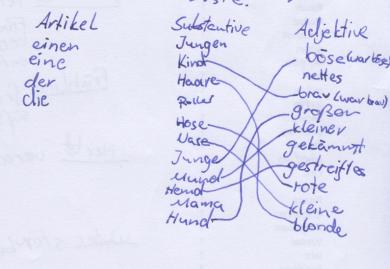 Artikel
einen
eine
der
die
Substantive
Jungen
Kind
Haare
Hose
Nase
Junge
Mund
Hemd
Mama
Hund
Adjektive
böse (war böse)
nettes
brav (war brav)
großer
kleiner
gekämmt
gestreiftes
rote
kleine
blonde